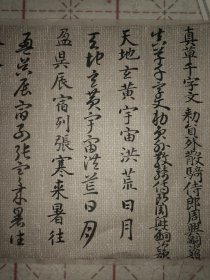 真草千字文 勅員外散騎侍郎周興嗣韻
真草千字文勅員外散騎侍郎周興嗣韻
天地玄黃宇宙洪荒日月
天地玄黃宇宙洪荒日月
盈昃辰宿列張寒来暑往
盈昃辰宿列張寒来暑往